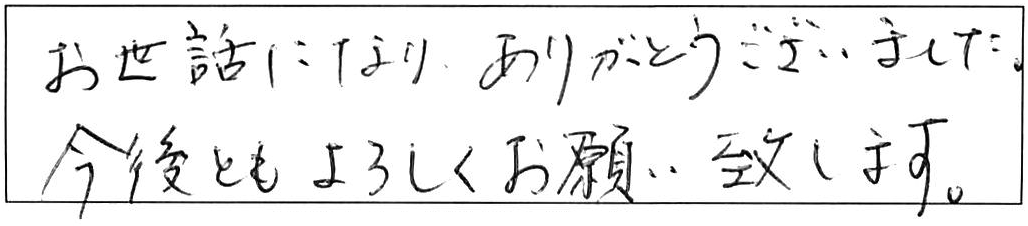 お世話になり、ありがとうございました。
今後ともよろしくお願い致します。